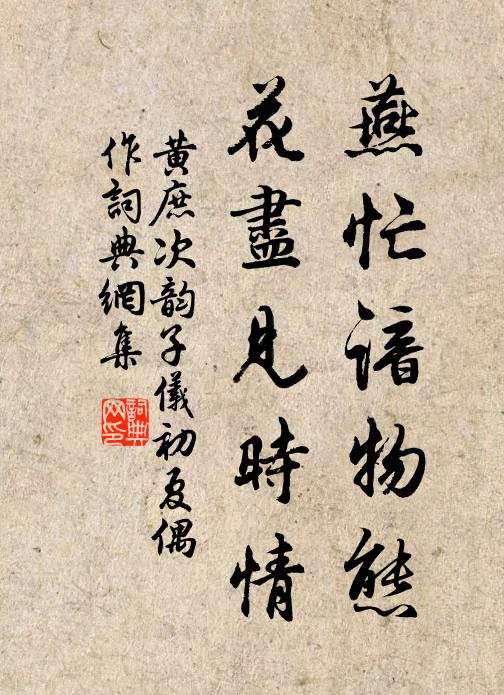 燕忙諳物態
花盡見時情
黃庶次韵子儀初夏偶
作詞典網集
詞典
网印